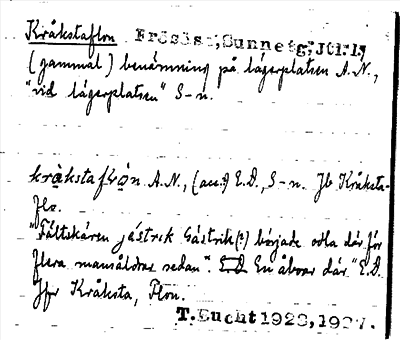 Kråkstaflon Frösös:, Sunneg; Jtl:1;
(gammal) benämning på lägerplatsen A.N.,
"vid lägerplatsen" S-n.
kråkstaflòn A.N., (acc.) E.D., S-n. Jb Kråksta-
flo.
"Fältskären Jästrik Gästrik(?) började odla där för
flera mansåldrar sedan". En åbor där." E.D.
Jfr Kråksta, Flon.
T. Bucht 1928, 1937.